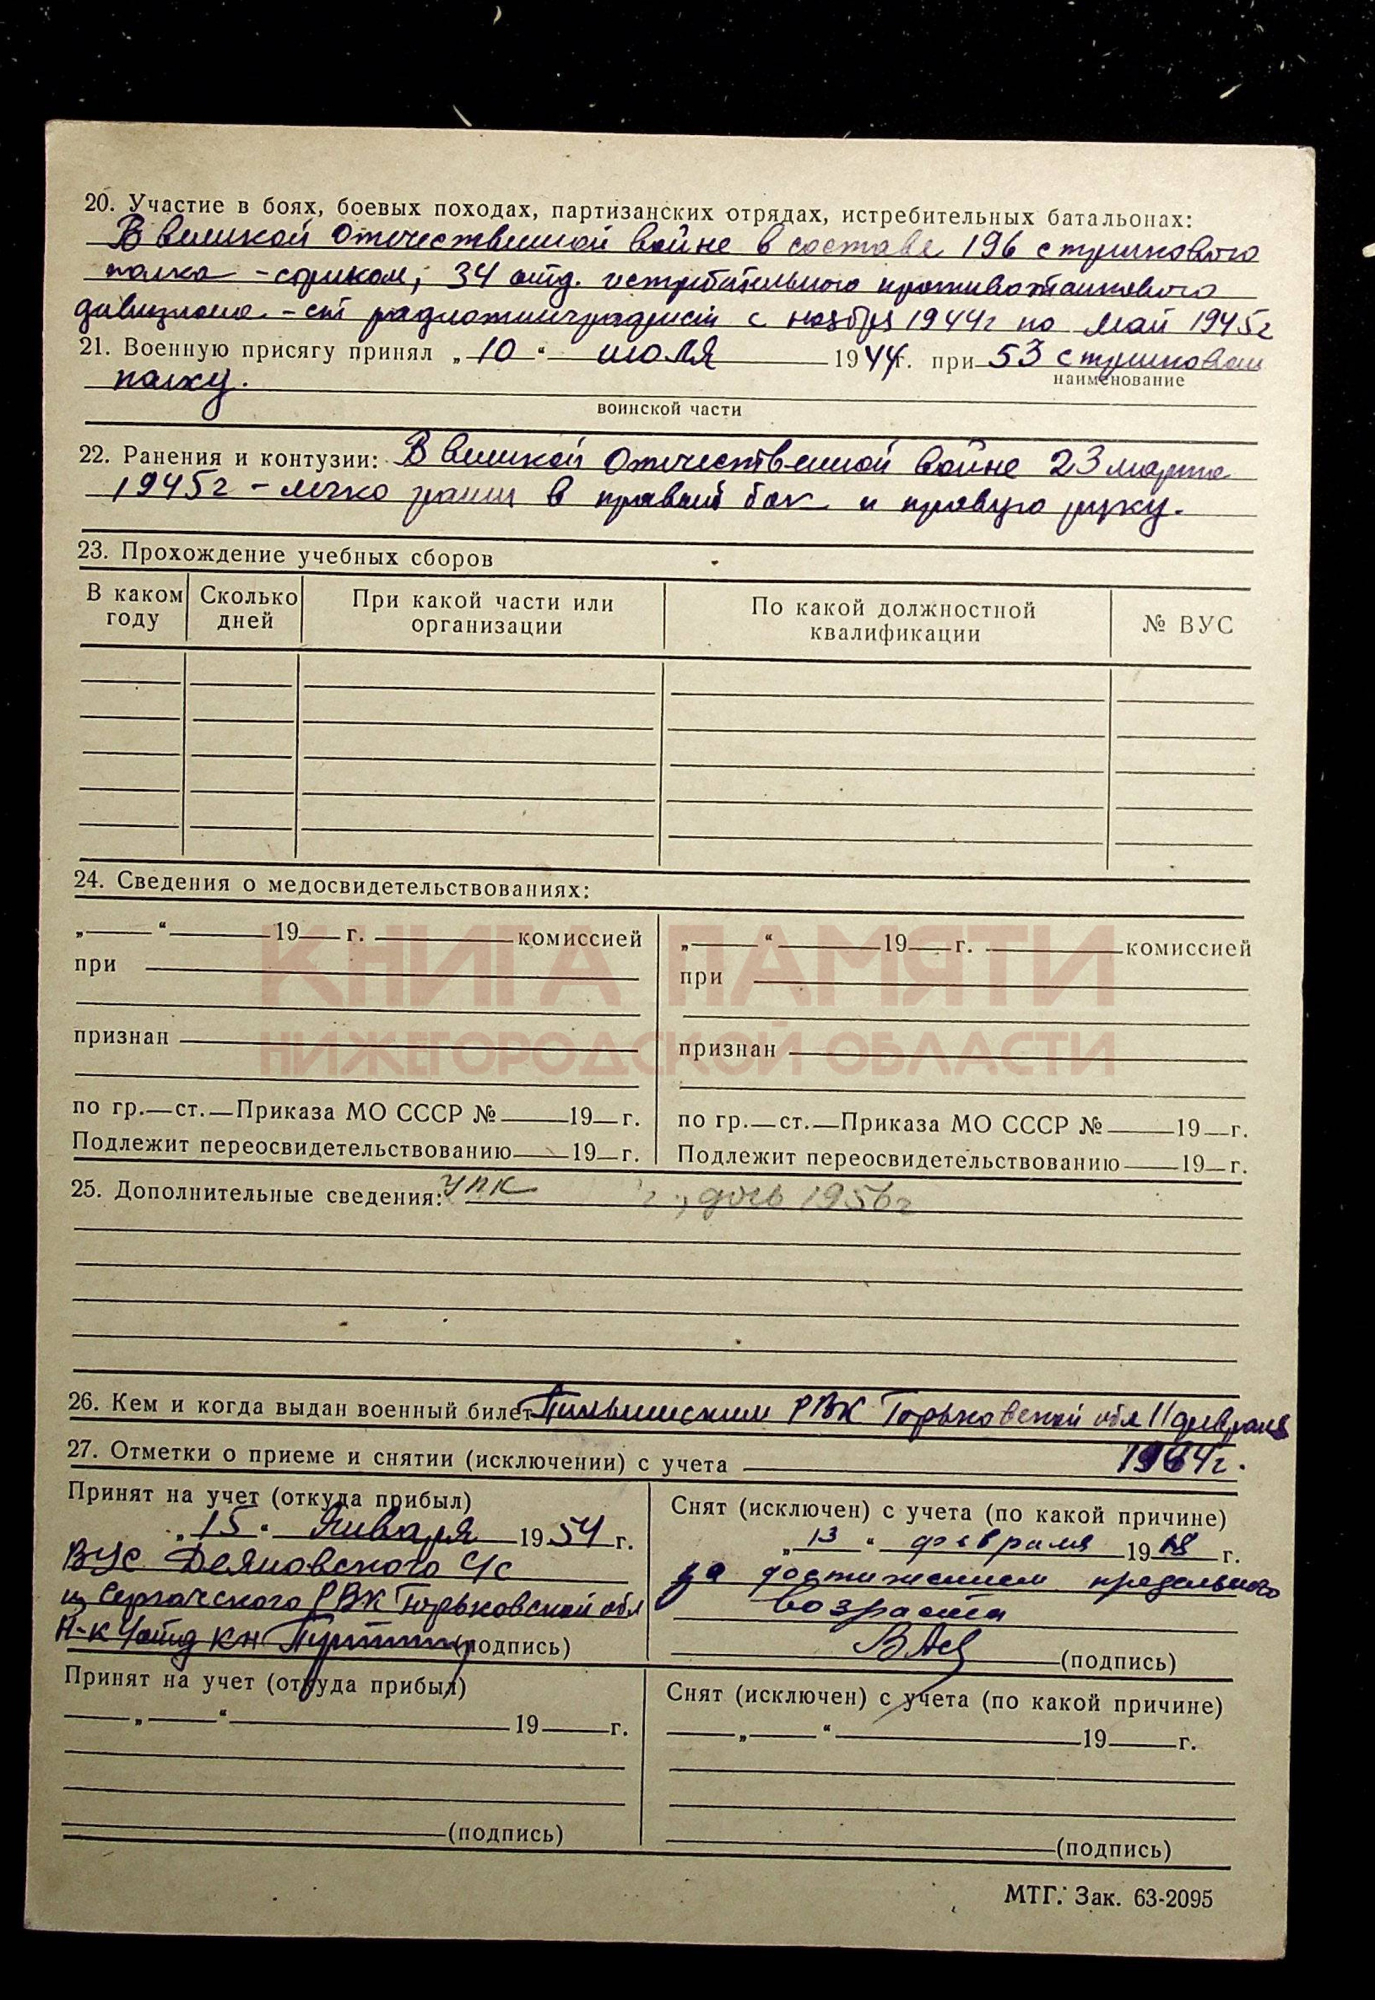 20. Участие в боях, боевых походах, партизанских отрядах, истребительных батальонах:
В великой отечественной войне в составе 196 стрелкового
полка - сапиком, 34 отд. истребительного противотанкового
дивизиона - ст радиотелеграфист с ноября 1944г по май 1945г
21. Военную присягу принял „10“ июля 1944г. при 53 стрелковом
наименование
полку.
воинской части
22. Ранения и контузии: В великой отечественной войне 23 марта
1945г - легко ранен в правый бок и правую руку.
23. Прохождение учебных сборов
В каком году
Сколько дней
При какой части или организации
По какой должностной квалификации
№ ВУС
24. Сведения о медосвидетельствованиях:
„ “ 19 г. комиссией
при
признан
по гр. ст. Приказа МО СССР № 19 г.
Подлежит переосвидетельствованию 19 г.
„ “ 19 г. комиссией
при
признан
по гр. ст. Приказа МО СССР № 19 г.
Подлежит переосвидетельствованию 19 г.
КНИГА ПАМЯТИ
НИЖЕГОРОДСКОЙ ОБЛАСТИ
25. Дополнительные сведения: УПК , дочь 1956г
26. Кем и когда выдан военный билет Пильнинским РВК Горьковской обл 11 февраля
1964г.
27. Отметки о приеме и снятии (исключении) с учета
Принят на учет (откуда прибыл)
„15“ Января 1954 г.
ВУС Деяновского с/с
из Сергачского РВК Горьковской обл
Н-к 4 отд к-н (подпись)
Снят (исключен) с учета (по какой причине)
„13“ февраля 19 г.
за достижением предельного
возраста
(подпись)
Принят на учет (откуда прибыл)
„ “ 19 г.
(подпись)
Снят (исключен) с учета (по какой причине)
„ “ 19 г.
(подпись)
МТГ. Зак. 63-2095